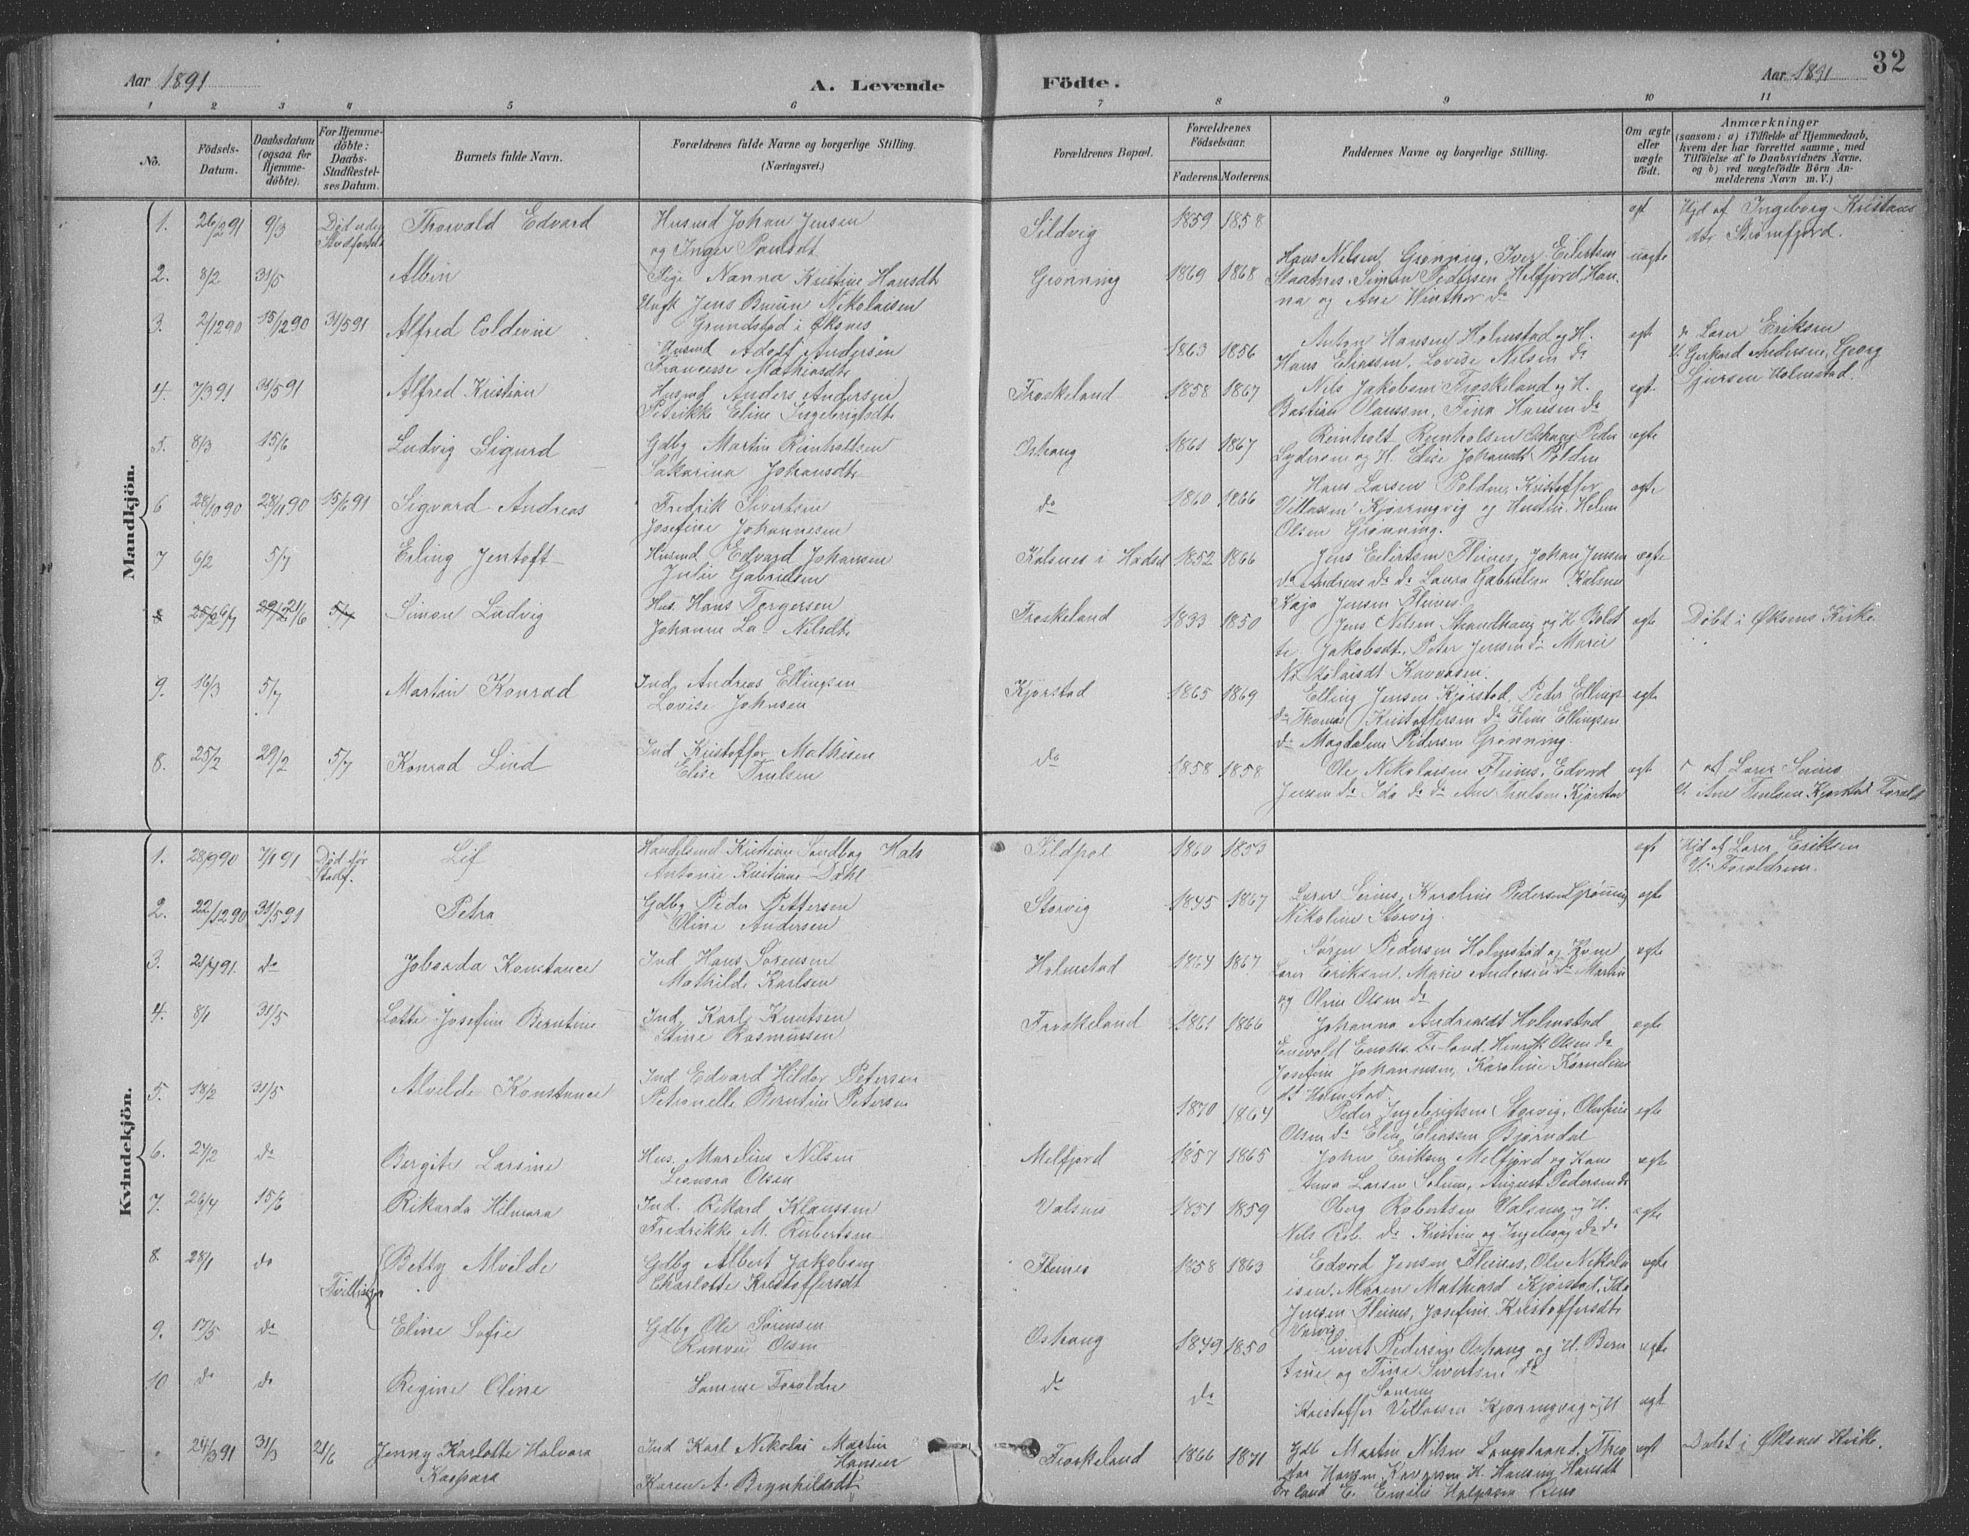 Aar 1891
A. Levende
Födte.
Aar 1891
32
1 2 3 4 5 6 7 8 9 10 11
No.
Födsels-
Datum.
Daabsdatum
(ogsaa for
Hjemme-
döbte).
For Hjemme-
döbte:
Daabs-
Stadfæstel-
ses Datum.
Barnets fulde Navn.
Forældrenes fulde Navne og borgerlige Stilling.
(Næringsvei.)
Forældrenes Bopæl.
Forældrenes
Födselsaar.
Faderens. Moderens.
Faddernes Navne og borgerlige Stilling.
Om ægte
eller
uægte
födt.
Anmærkninger
(saasom: a) i Tilfælde af Hjemmedaab,
hvem der har forrettet samme, med
Tilföielse af to Daabsvidners Navne,
og b) ved uægtefödte Börn An-
melderens Navn m. V.)
Mandkjön.
1. 26/2 91 9/3 Död uden Stadfæst Thorvald Edvard
Husmd Johan Jensen
og Inger Paulsdt
Sildvig 1859 1858 egt
Hjd af Ingeborg Kristans
dtr Strömfjord.
2. 8/2 31/5 Albin
Pige Nanna Kristine Hansdt
Ungk Jens Bruun Nikolaisen
Grundstad i Øksnes
Grönning 1869 1868
Hans Nilsen Grönning, Iver Eilertsen
Slaatnes, Simon Pedersen Melfjord, Han-
na og Ane Winther do
uægte
3. 2/12 90 15/12 90 31/5 91 Alfred Coldevin
Husmd Adolf Andersen
Francesse Mathiasdtr
1863 1856
Anton Hansen Holmstad og H.
Hans Eliassen, Lovise Nilsen do
egt
Lærer Eriksen
V. Gerhard Andersen, Georg
Sjursen Holmstad.
4. 7/3 91 31/5 91 Alfred Kristian
Husmd Anders Andersen
Petrikke Eline Ingebrigtsdt
Froskeland 1858 1867
Nils Jakobsen Froskeland og H.
Bastian Olaussen, Tina Hansen do
egt
5. 8/3 15/6 Ludvig Sigurd
Gdbg Martin Reinholtsen
Sakarina Johansdtr
Oshaug 1861 1867
Reinholt Reinholsen Oshaug Peder
Lydersen og H. Elise Johansdt Polden
ægte
6 28/10 90 23/11 90 15/6 91 Sigvard Andreas
Fredrik Sivertsen
Josefine Johannesen
do 1860 1866
Hans Larsen Polden, Kristoffer
Villassen Kjörringvig og Hustru, Helen
Olsen Grönning.
egte
7 6/2 5/7 Erling Jentoft
Husmd Edvard Johansen
Julie Gabrielsen
Kolsnes i Hadsel 1852 1866
Jens Eilertsen Fleines, Johan Jensen
do Andreas do do Laura Gabrielsen Kolsnes
Kaja Jensen Fleines
ægte
8 21/6 5/7 Simon Ludvig
Hus. Hans Torgersen
Johanne La. Nilsdtr
Froskeland 1833 1850
Jens Nilsen Strandhaug og K. Bolet
te Jakobsdt, Peter Jensen do Marie
egte
Döbt i Øksnes Kirke
9. 16/3 5/7 Martin Konrad
Ind. Andreas Ellingsen
Lovise Johnsen
Kjörstad 1865 1869
Elling Jensen Kjörstad, Peder Ellings
do Thomas Kristoffersen do Eline Ellingsen
do Magdalene Pedersen Grönning.
egte
8. 25/2 29/2 5/7 Konrad Lind
Ind Kristoffer Mathisen
Elise Trulsen
do 1858 1858
Ole Nikolaisen Fleines, Edvard
Jensen do Ida do do Ane Trulsen Kjörstad
egt
af Lærer Seines
V. Ane Trulsen Kjörstad
Kvindekjön.
1. 28/9 90 7/1 91 Död för Stadf. Leif
Handelsmd Kristian Sandberg Hals
Antonie Kristiane Dahl
Sildpol 1860 1853 egt
Hjd af Lærer Eriksen
V. Forældrene.
2. 22/12 90 31/5 91 Petra
Gdbg Peder Pettersen
Oline Andersen
Storvig 1845 1867
Lærer Seines, Karoline Pedersen Grönning
Nikoline Storvig.
egte
3. 21/4 91. do Joborda Konstance
Ind Hans Sörensen
Mathilde Karlsen
Holmstad 1864 1867
Sören Pedersen Holmstad og Kone
Lærer Eriksen, Marie Andersen do Martin
og Oline Olsen do
ægte
4. 8/1 31/5 Lotte Josefine Berntine
Ind. Karl Knutsen
Stine Rasmussen
Froskeland 1861 1866
Johanna Andreasdt Holmstad
Enevold Enoks. Fr-land. Henrik Olsen do
Josefine Johannesen, Karoline Kornelius
dt Holmstad.
ægte
5. 18/2 31/5 Alvelde Konstance
Ind Edvard Hilder Petersen
Petronelle Berntine Petersen
1870 1864
Peder Ingebrigtsen Storvig, Olufine
Olsen do Elen Eliassen Björndal
egte
6. 27/2 do Bergite Larsine
Hus. Marelius Nilsen
Leonora Olsen
Melfjord 1857 1865
Johan Eriksen Melfjord og Kone
Anna Larsen Solum, August Pedersen do
egte
7. 26/4 15/6 Rikarda Hilmara
Ind. Rikard Klaussen
Fredrikke M. Robertsen
Valsnes 1851 1859
Oberg Robertsen Valsnes og H.
Nils Rob. do Kristine og Ingeborg do do
egte
8. 28/1 do Betty Alvilde
Gdbg Albert Jakobsen
Charlotte Kristoffersdt
Fleines 1858 1863
Edvard Jensen Fleines, Ole Nikola
isen, Maren Mathiasd Kjörstad, Ida
Jensen Fleines, Josefine Kristoffersdtr
ægte
Tvillinger
9. 17/5 do Eline Sofie
Gdbg Ole Sörensen
Olsen
Oshaug 1849 1850
Sivert Pedersen Oshaug og H. Bern
tine og Tina Sivertsen do
egte
10 do do Regine Oline
Samme Forældre
do do
Samme
Kristoffer Villassen Kjörringvig og H
egt
24/3 91 31/3 21/6 Jenny Karlotte Halvara
Kaspara
Ind Karl Nikolai Martin
Hansen
Karen A. Brynhildsdt
Froskeland 1866 1871
Gdb Martin Nilsen Langstrand, Theo
dor Hansen H. Hansine Hansdt
egt
Döbt i Øksnes Kirke.